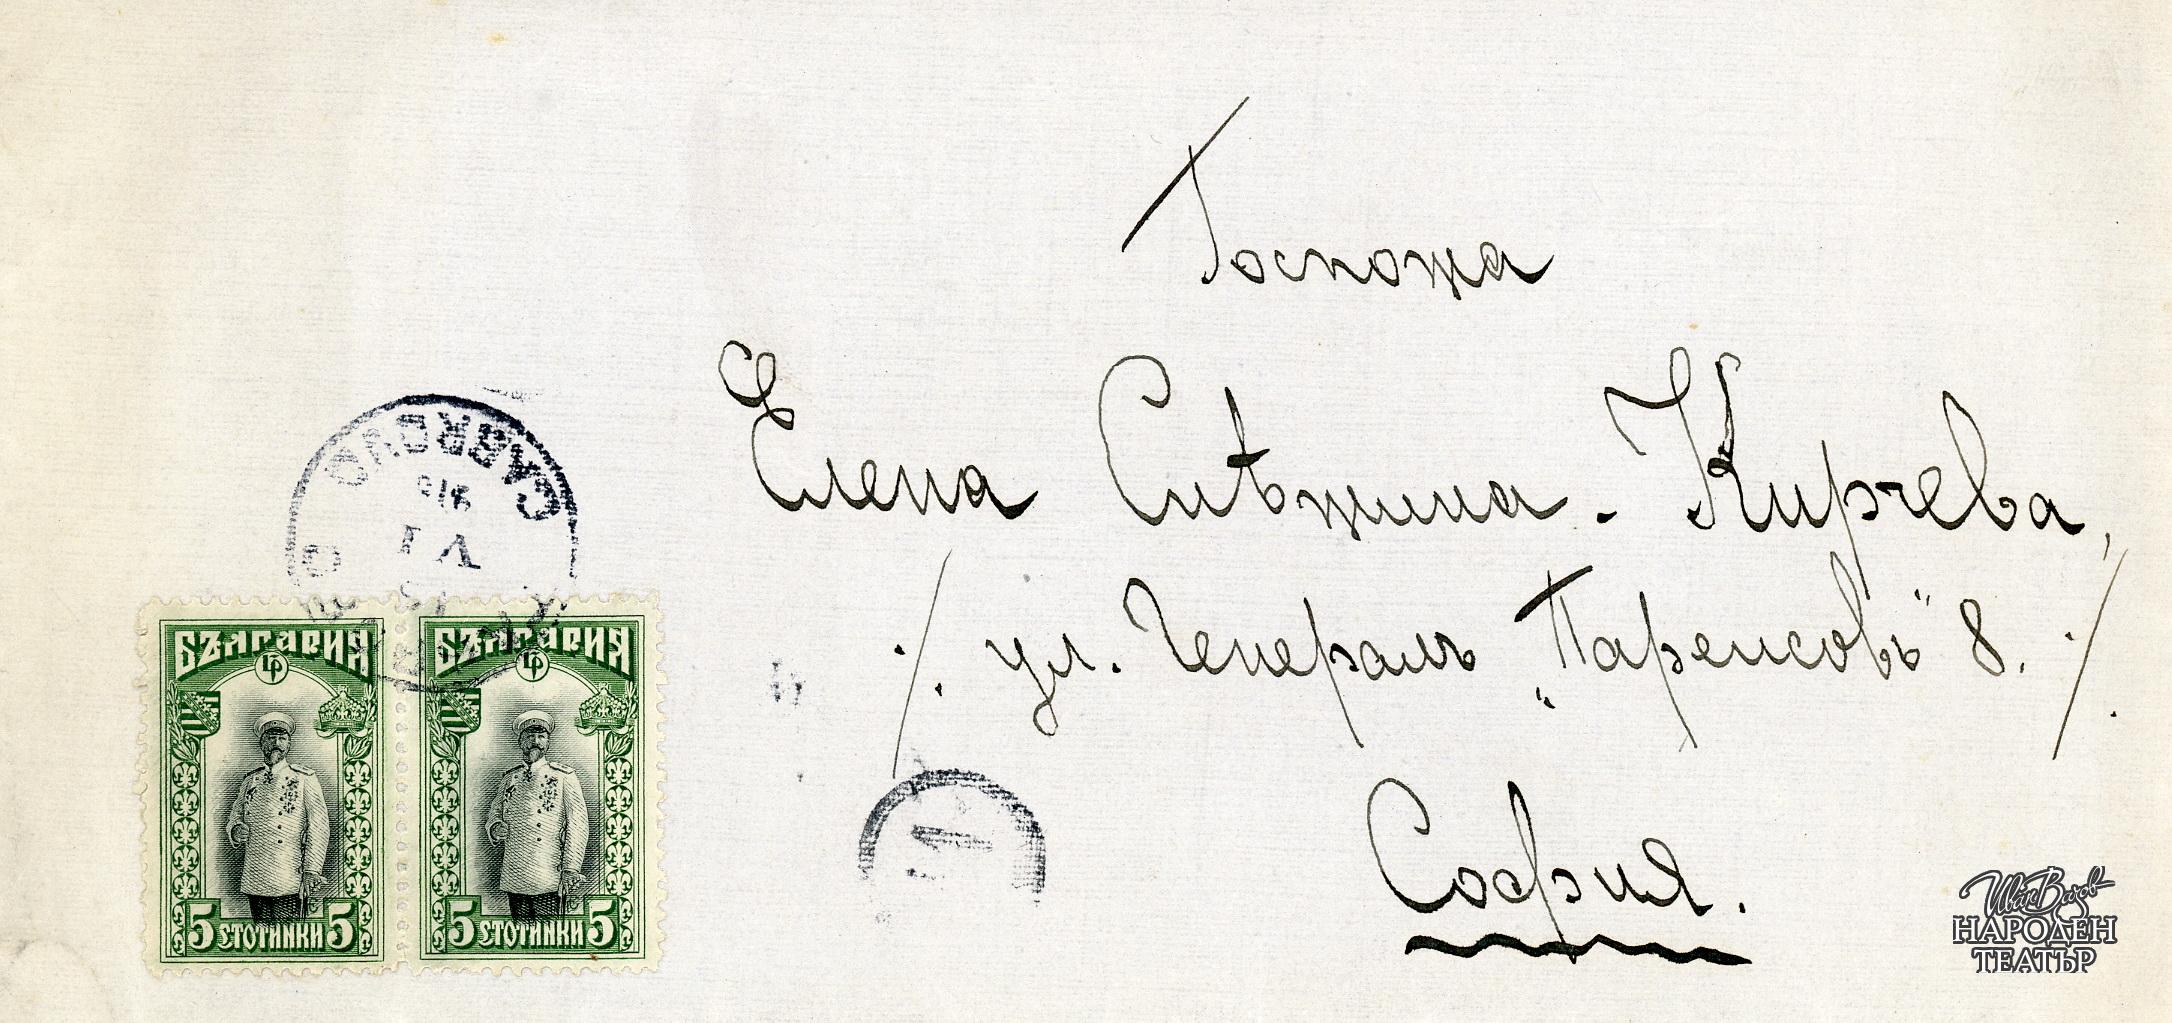 Госпожа
Елена Снѣжина - Кирчева,
/. ул. Генералъ „Паренсовъ“ 8. /.
София.
GABROVO
VI
БЪЛГАРИЯ
БЪЛГАРИЯ
5 СТОТИНКИ 5
5 СТОТИНКИ 5
Иван Вазов
НАРОДЕН
ТЕАТЪР